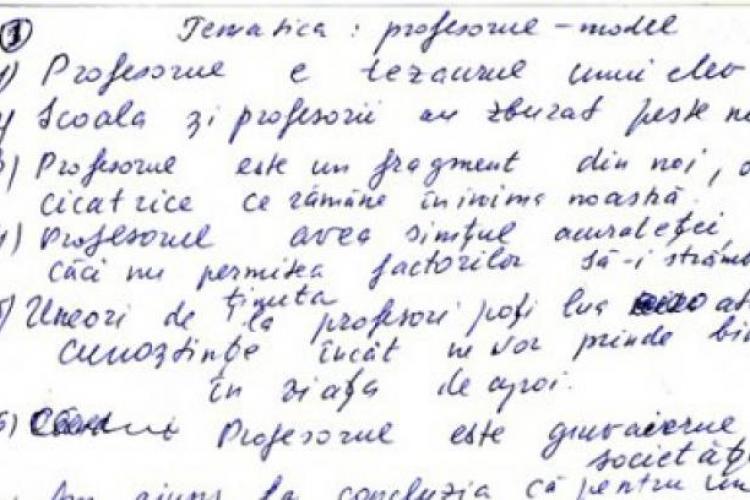 1 Tematica: profesorul-model
1) Profesorul e tezaurul unui elev
2) Școala și profesorii au zburat peste n
3) Profesorul este un fragment din noi, o
cicatrice ce rămâne în inima noastră.
4) Profesorul avea simțul acurateței,
căci nu permitea factorilor să-i strâmb
ținuta
5) Uneori de la profesori poți lua at
cunoștințe încât ne vor prinde bin
în viața de apoi.
6) Profesorul este giuvaierul
societăț
Am ajuns la concluzia că pentru un